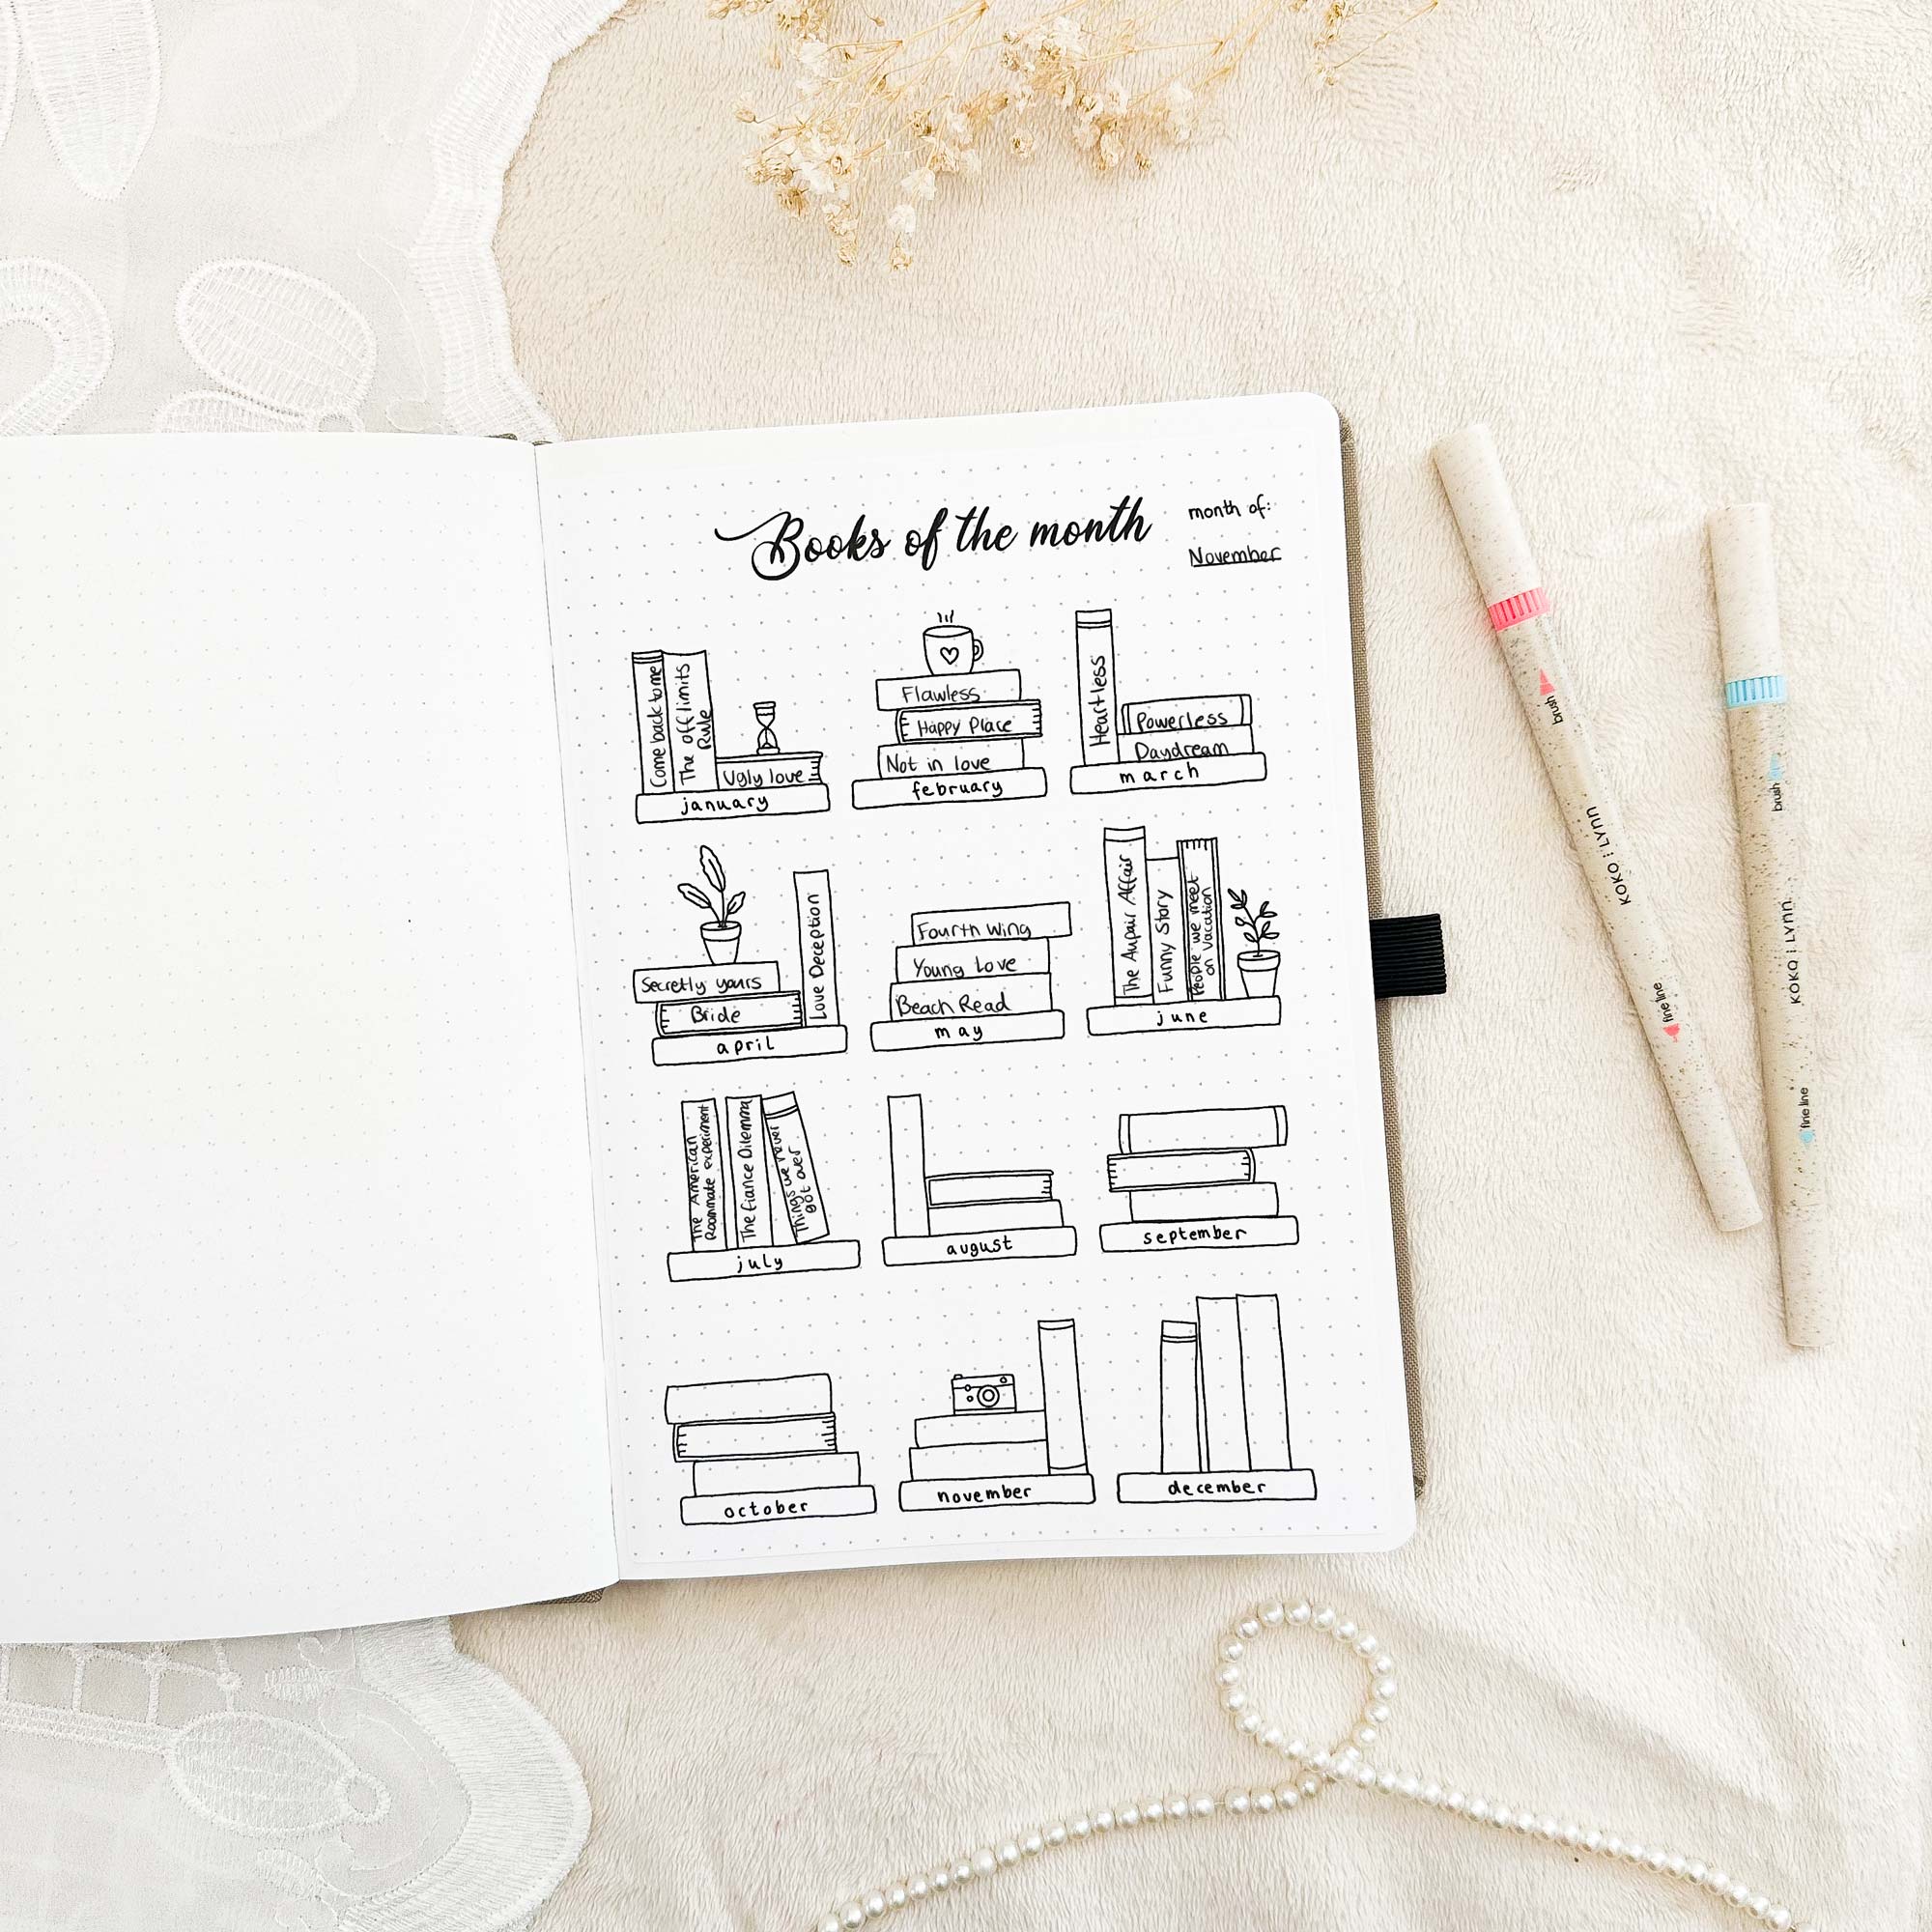 Books of the month
month of:
November
Come back to me
The off limits
Rule
Ugly love
january
Flawless
Happy Place
Not in love
february
Heartless
Powerless
Daydream
march
Secretly yours
Bride
Love Deception
april
Fourth Wing
Young Love
Beach Read
may
The Aupair Affair
Funny Story
People we meet
on Vacation
june
The American
Roommate experiment
The fiance Dilemma
Things we never
got over
july
august
september
october
november
december
brush
KOKO | LYNN
fine line
brush
KOKO | LYNN
fine line